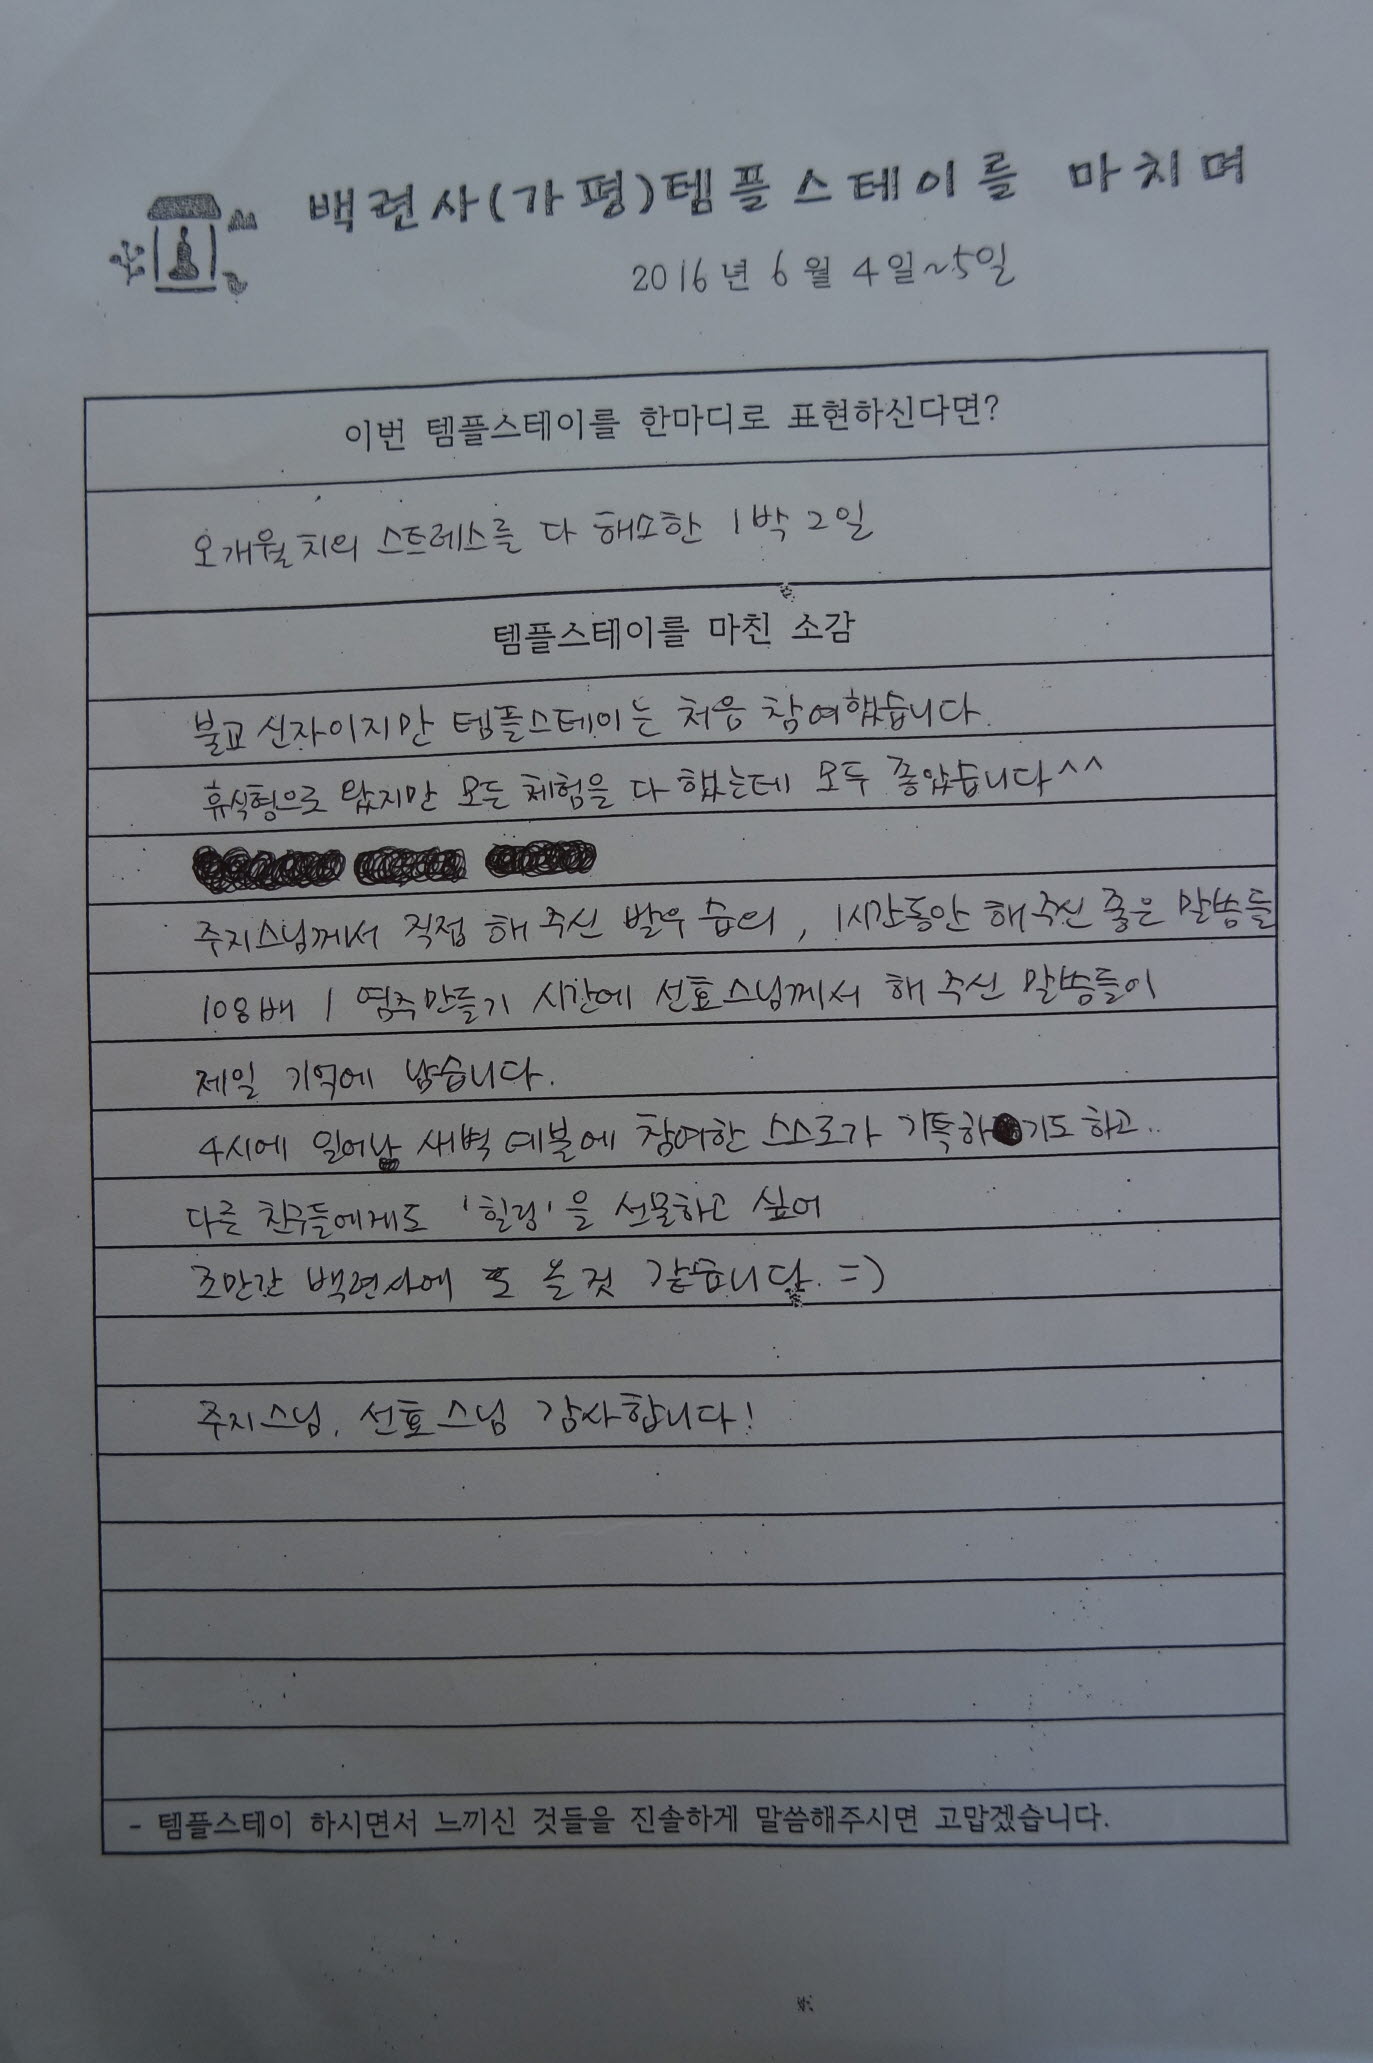 백련사(가평)템플스테이를 마치며
2016년 6월 4일~5일
이번 템플스테이를 한마디로 표현하신다면?
오개월치의 스트레스를 다 해소한 1박 2일
템플스테이를 마친 소감
불교신자이지만 템플스테이는 처음 참여했습니다.
휴식형으로 왔지만 모든 체험을 다 했는데 모두 좋았습니다^^
주지스님께서 직접 해 주신 발우 습의, 1시간동안 해주신 좋은 말씀들
108배 / 염주만들기 시간에 선효스님께서 해 주신 말씀들이
제일 기억에 남습니다.
4시에 일어나 새벽 예불에 참여한 스스로가 기특하기도 하고..
다른 친구들에게도 '힐링'을 선물하고 싶어
조만간 백련사에 또 올 것 같습니다. =)
주지스님, 선효스님 감사합니다!
- 템플스테이 하시면서 느끼신 것들을 진솔하게 말씀해주시면 고맙겠습니다.